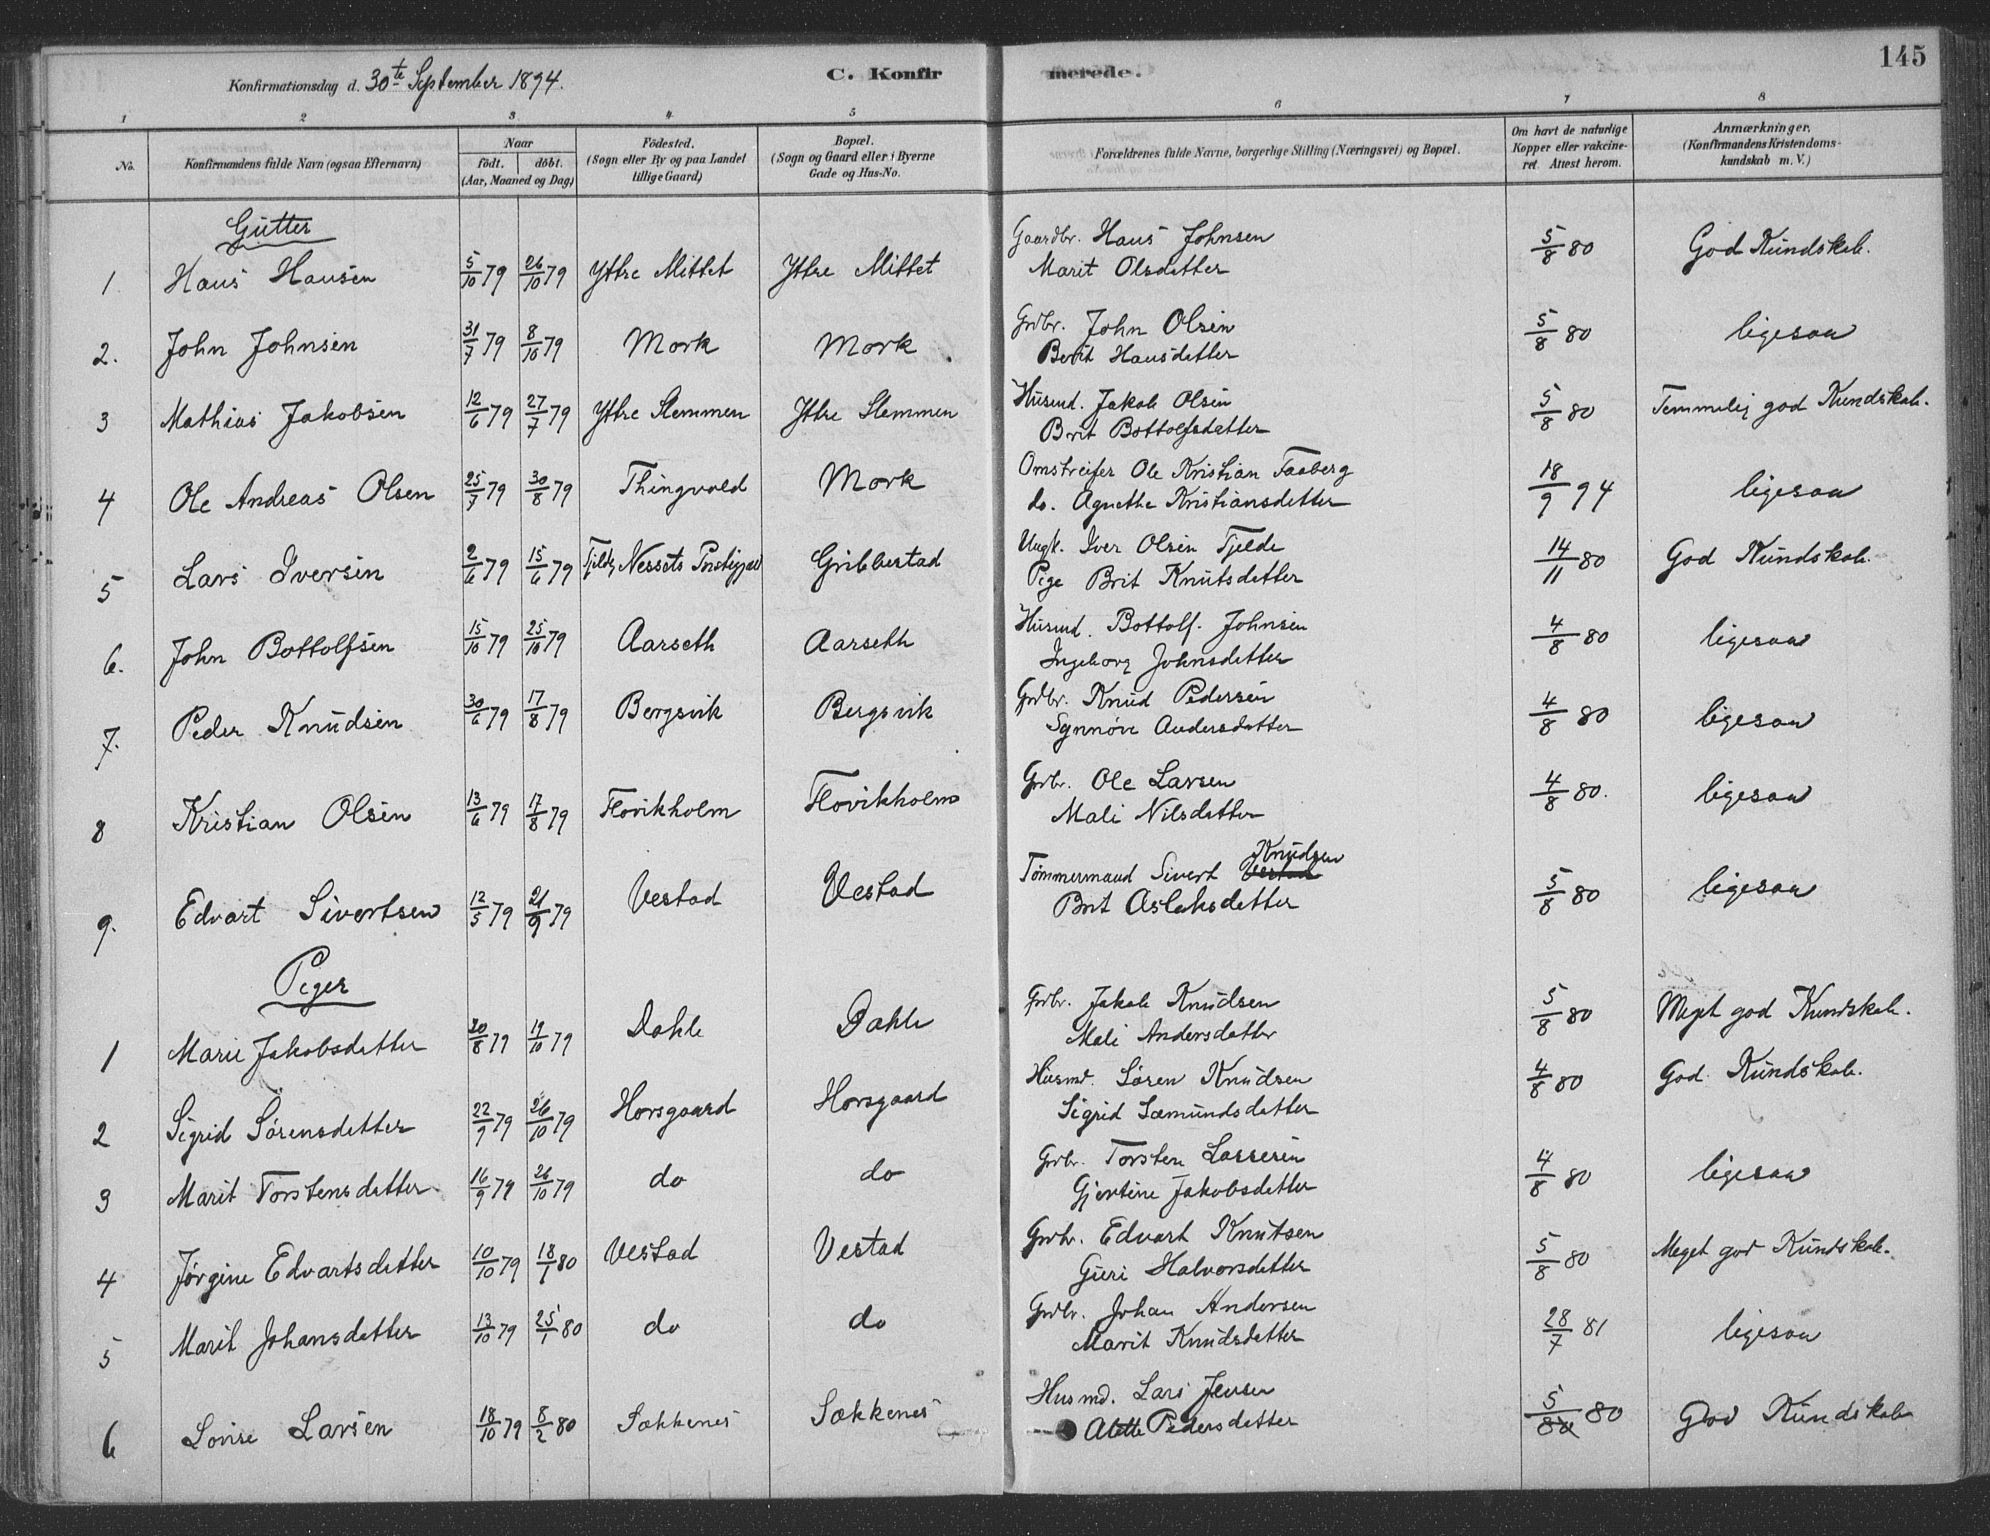 145
Konfirmationsdag d. 30te September 1894.
C. Konfirmerede.
1 2 3 4 5 6 7 8
No. Konfirmandens fulde Navn (ogsaa Efternavn) Naar født. døbt. (Aar, Maaned og Dag) Födested. (Sogn eller By og paa Landet tillige Gaard) Bopæl. (Sogn og Gaard eller i Byerne Gade og Hus-No. Forældrenes fulde Navne, borgerlige Stilling (Næringsvei) og Bopæl. Om havt de naturlige Kopper eller vakcineret. Attest herom. Anmærkninger. (Konfirmandens Kristendomskundskab m. V.)
Gutter
1 Hans Hansen 5/10 79 26/10 79 Yttre Mittet Yttre Mittet Gaardbr. Hans Johnsen
Marit Olsdatter 5/8 80 God Kundskab.
2. John Johnsen 31/7 79 8/10 79 Mork Mork Grdbr. John Olsen
Berit Hansdatter 5/8 80 ligesaa
3 Mathias Jakobsen 12/6 79 27/7 79 Yttre Slemmen Yttre Slemmen Husmd. Jakob Olsen
Brit Bottolfsdatter 5/8 80 Temmelig god Kundskab.
4 Ole Andreas Olsen 25/7 79 30/8 79 Thingvold Mork Omstreifer Ole Kristian Faaberg
do. Agnethe Kristiansdatter 18/9 94 ligesaa
5 Lars Iversen 2/6 79 15/6 79 Nessets Gribbestad Ungk. Iver Olsen Tjelde
Pige Brit Knutsdatter 14/11 80 God Kundskab.
6. John Bottolfsen 15/10 79 25/10 79 Aarseth Aarseth Husmd. Bottolf. Johnsen
Ingeborg Johnsdatter 4/8 80 ligesaa
7. Peder Knudsen 30/6 79 17/8 79 Bergsvik Bergsvik Grdbr. Knud Pedersen
Synnøve Andersdatter 4/8 80 ligesaa
8 Kristian Olsen 13/6 79 17/8 79 Flovikholm Flovikholm Grbr. Ole Larsen
Mali Nilsdatter 4/8 80. ligesaa
9. Edvart Sivertsen 12/5 79 21/9 79 Vestad Vestad Tömmermand Sivert Vestad Knudsen
Brit Aslaksdatter 5/8 80 ligesaa
Piger
1 Marie Jakobsdatter 30/8 79 19/10 79 Dahle Dahle Grbr. Jakob Knudsen
Mali Andersdatter 5/8 80 Meget god Kundskab.
2 Sigrid Sørensdatter 22/9 79 26/10 79 Horsgaard Horsgaard Husmd. Søren Knudsen
Sigrid Sæmundsdatter 4/8 80 God Kundskab.
3 Marit Torstensdatter 16/9 79 26/10 79 do do Grbr. Torsten Lassesen
Gjertine Jakobsdatter 4/8 80 ligesaa
4 Jørgine Edvartsdatter 10/10 79 18/1 80 Vestad Vestad Grbr. Edvart Knutsen
Guri Halvorsdatter 5/8 80 Meget god Kundskab.
5 Marit Johansdatter 13/10 79 25/1 80 do do Grdbr. Johan Andersen
Marit Knudsdatter 28/7 81 ligesaa
6 Lovise Larsen 18/10 79 8/2 80 Sækkenes Sækkenes Husmd. Lars Jensen
Alette Pedersdatter 5/80 80 God Kundskab